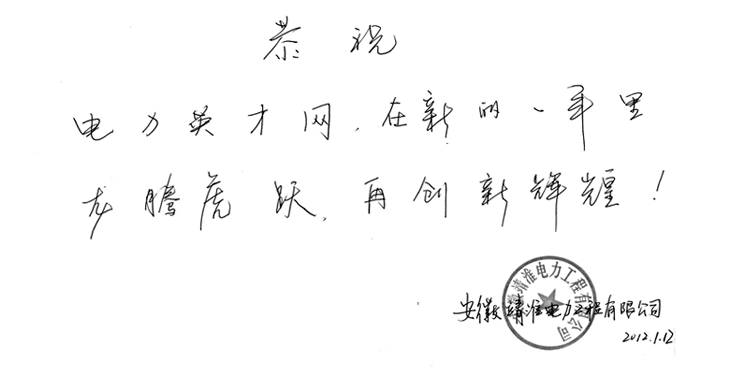 恭祝
电力英才网，在新的一年里
龙腾虎跃，再创新辉煌！
安徽靖淮电力工程有限公司
安徽靖淮电力工程有限公司
2012.1.12